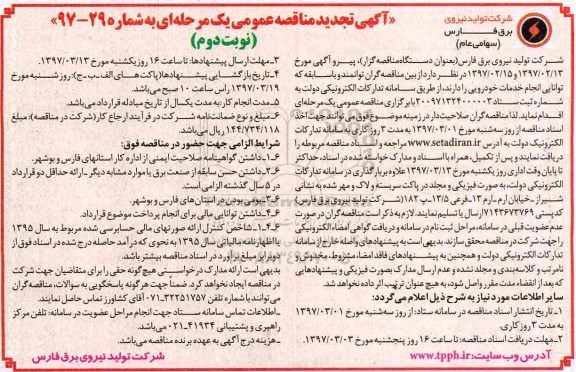 شرکت تولید نیروی
برق فارس
(سهامی عام)
«آگهی تجدید مناقصه عمومی یک مرحله‌ای به شماره ۲۹-۹۷»
(نوبت دوم)
شرکت تولید نیروی برق فارس (بعنوان دستگاه مناقصه گزار)، پیرو آگهی مورخ
۱۳۹۷/۰۲/۱۳ و ۱۳۹۷/۰۲/۱۵ در نظر دارد از بین مناقصه گران توانمند و باسابقه که
توانایی انجام خدمات خودرویی را دارند، از طریق سامانه تدارکات الکترونیکی دولت به
شماره ثبت ستاد ۲۰۰۹۷۱۳۲۴۰۰۰۰۰۳ با برگزاری مناقصه عمومی یک مرحله‌ای
اقدام نماید. لذا مناقصه گران صلاحیت‌دار در زمینه موضوع فوق می‌توانند جهت اخذ
اسناد مناقصه از روز سه‌شنبه مورخ ۱۳۹۷/۰۳/۰۱ به مدت ۳ روز کاری به سامانه تدارکات
الکترونیک دولت به آدرس www.setadiran.ir مراجعه و اسناد مناقصه مربوطه را
دریافت نمایند و پس از تکمیل، همراه با اسناد و مدارک خواسته شده در اسناد، حداکثر
تا پایان وقت اداری روز یکشنبه مورخ ۱۳۹۷/۰۳/۱۳ علاوه بر بارگذاری در سامانه تدارکات
الکترونیکی دولت، به صورت فیزیکی و مجلد در پاکت سربسته و لاک و مهر شده به نشانی
شیراز - خیابان ارم - ارم ۱۳ - فرعی ۱۳/۵ - پ ۱۸۲ (شرکت تولید نیروی برق فارس)
کدپستی ۷۱۴۳۶۷۳۷۶۹ ارسال یا تسلیم نمایند. لازم به ذکر است مناقصه گران در صورت
عدم عضویت قبلی در سامانه، مراحل ثبت نام در سامانه و دریافت گواهی امضاء الکترونیکی
را جهت شرکت در مناقصه محقق سازند. بدیهی است به پیشنهادهای واصله خارج از سامانه
تدارکات الکترونیکی دولت و همچنین به پیشنهادهای فاقد امضاء، مشروط، مخدوش و
نامرتب و کلاسه‌بندی و مجلد نشده و عدم ارسال مدارک بصورت فیزیکی و پیشنهادهایی
که بعد از انقضاء مدت مقرر واصل شود، به هیچ عنوان ترتیب اثر داده نخواهد شد.
سایر اطلاعات مورد نیاز به شرح ذیل اعلام می‌گردد:
۱- تاریخ انتشار اسناد مناقصه در سامانه ستاد: از روز سه‌شنبه مورخ ۱۳۹۷/۰۳/۰۱
به مدت ۳ روز کاری.
۲- مهلت دریافت اسناد مناقصه: تا ساعت ۱۶ روز پنجشنبه مورخ ۱۳۹۷/۰۳/۰۳.
۳- مهلت ارسال پیشنهادها: تا ساعت ۱۶ روز یکشنبه مورخ ۱۳۹۷/۰۳/۱۳.
۴- تاریخ بازگشایی پیشنهادها (پاکت‌های الف-ب-ج): روز شنبه مورخ
۱۳۹۷/۰۳/۱۹ راس ساعت ۱۰ صبح می‌باشد.
۵- مدت انجام کار: به مدت یکسال از تاریخ مبادله قرارداد می‌باشد.
۶- مبلغ و نوع ضمانت‌نامه شرکت در فرآیند ارجاع کار (شرکت در مناقصه): مبلغ
۱۴۴/۷۳۴/۱۱۸ ریال می‌باشد.
شرایط الزامی جهت حضور در مناقصه فوق:
۱-۶- داشتن گواهینامه صلاحیت ایمنی از اداره کار استانهای فارس و بوشهر.
۲-۶- داشتن حسن سابقه از صنعت برق یا موارد مشابه دیگر - ارائه حداقل دو قرارداد
در ۵ سال گذشته الزامی است.
۳-۶- بومی بودن در استان‌های فارس و بوشهر.
۴-۶- داشتن توانایی مالی برای انجام پرداخت موضوع قرارداد.
۱-۴-۶- شاخص کنترل ارائه صورتهای مالی حسابرسی شده مربوط به سال ۱۳۹۵
یا اظهارنامه مالیاتی سال ۱۳۹۵ به نحوی که درآمد حاصله درج شده در اسناد فوق از
دو برابر مبلغ برآورد در اسناد مناقصه بیشتر باشد.
بدیهی است ارائه مدارک درخواستی هیچ گونه حقی را برای متقاضیان جهت شرکت
در مناقصه ایجاد نخواهد کرد. ضمناً جهت هر گونه پاسخگویی به سوالات، مناقصه گران
می‌توانند با شماره تلفن ۳۲۲۵۱۷۵۷-۰۷۱ آقای کشاورز تماس حاصل نمایند.
- اطلاعات تماس سامانه ستاد جهت انجام مراحل عضویت در سامانه: تلفن مرکز
راهبری و پشتیبانی ۴۱۹۳۴-۰۲۱ می‌باشد.
- هزینه درج آگهی به عهده برنده مناقصه می‌باشد.
آدرس وب سایت: www.tpph.ir
شرکت تولید نیروی برق فارس